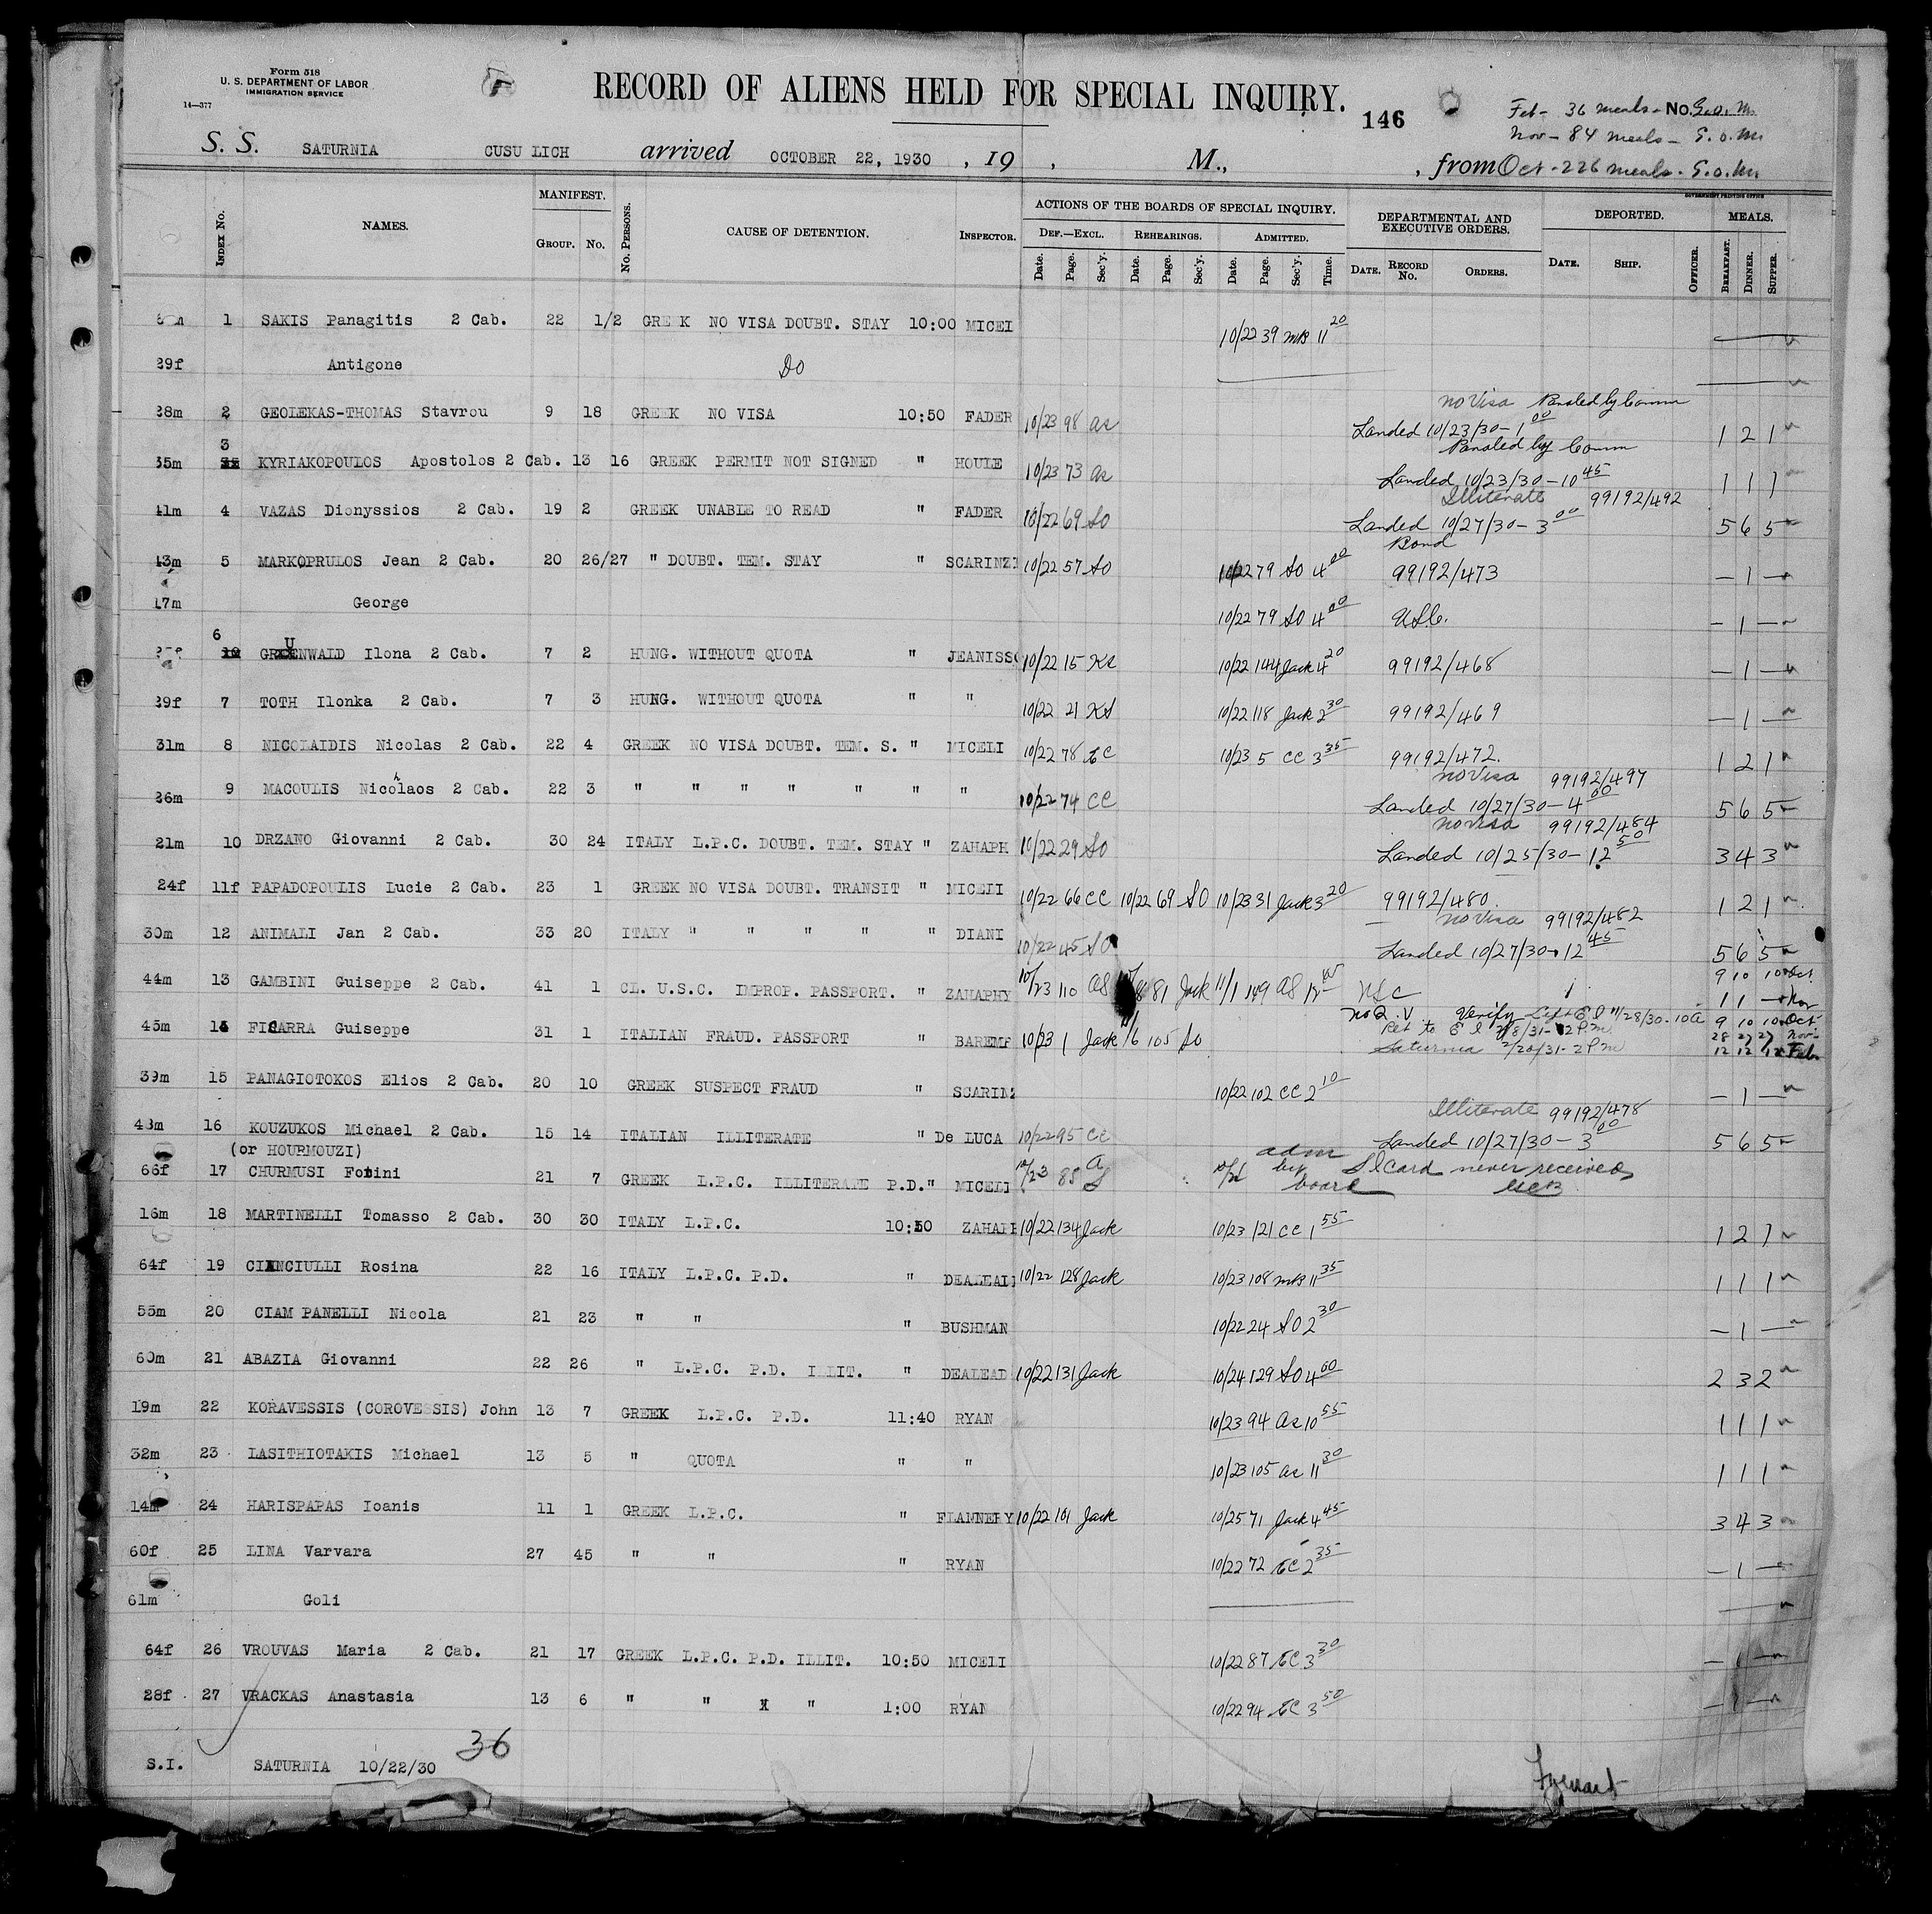 Form 518
U. S. DEPARTMENT OF LABOR
IMMIGRATION SERVICE
14—377
RECORD OF ALIENS HELD FOR SPECIAL INQUIRY.
146
Feb - 36 meals - No. S.o.m.
Nov - 84 meals - S.o.m.
S. S. SATURNIA CUSU LICH arrived OCTOBER 22, 1930 , 19 , M., , from Oct - 226 meals - S.o.m.
GOVERNMENT PRINTING OFFICE
INDEX No. NAMES. MANIFEST. GROUP. No. No. PERSONS. CAUSE OF DETENTION. INSPECTOR. ACTIONS OF THE BOARDS OF SPECIAL INQUIRY. DEF.—EXCL. REHEARINGS. ADMITTED. DEPARTMENTAL AND EXECUTIVE ORDERS. DEPORTED. MEALS.
Date. Page. Sec'y. Date. Page. Sec'y. Date. Page. Sec'y. Time. DATE. RECORD No. ORDERS. DATE. SHIP. OFFICER. BREAKFAST. DINNER. SUPPER.
1 SAKIS Panagitis 2 Cab. 22 1/2 GRE K NO VISA DOUBT. STAY 10:00 MICEI 10/22 39 MB 11 20
39f Antigone Do
38m 2 GEOLEKAS-THOMAS Stavrou 9 18 GREEK NO VISA 10:50 FADER 10/23 98 as no Visa Paroled by Comm Landed 10/23/30 - 1 00 1 2 1
35m 3 KYRIAKOPOULOS Apostolos 2 Cab. 13 16 GREEK PERMIT NOT SIGNED " HOULE 10/23 73 as Paroled by Comm Landed 10/23/30 - 10 45 1 1 1
41m 4 VAZAS Dionyssios 2 Cab. 19 2 GREEK UNABLE TO READ " FADER 10/22 69 SO Illiterate 99192/492 Landed 10/27/30 - 3 00 5 6 5
43m 5 MARKOPRULOS Jean 2 Cab. 20 26/27 " DOUBT. TEM. STAY " SCARINZI 10/22 57 SO 10/22 79 SO 4 00 Bond 99192/473 — 1 —
17m George 10/22 79 SO 4 00 USC. — 1 —
6 GRUENWALD Ilona 2 Cab. 7 2 HUNG. WITHOUT QUOTA " JEANISSO 10/22 15 KS 10/22 144 Jack 4 20 99192/468 — 1 —
39f 7 TOTH Ilonka 2 Cab. 7 3 HUNG. WITHOUT QUOTA " " 10/22 21 KS 10/22 118 Jack 2 30 99192/469 — 1 —
31m 8 NICOLAIDIS Nicolas 2 Cab. 22 4 GREEK NO VISA DOUBT. TEM. S. " MICELI 10/22 78 EC 10/23 5 CC 3 35 99192/472. 1 2 1
36m 9 MACOULIS Nicholaos 2 Cab. 22 3 " " " " " " " 10/22 74 CC no Visa 99192/497 Landed 10/27/30 - 4 00 5 6 5
21m 10 DRZANO Giovanni 2 Cab. 30 24 ITALY L.P.C. DOUBT. TEM. STAY " ZAHAPH 10/22 29 SO no Visa 99192/484 Landed 10/25/30 - 12 50 3 4 3
24f 11f PAPADOPOULIS Lucie 2 Cab. 23 1 GREEK NO VISA DOUBT. TRANSIT " MICEII 10/22 66 CC 10/22 69 SO 10/23 31 Jack 3 20 99192/480. 1 2 1
30m 12 ANIMALI Jan 2 Cab. 33 20 ITALY " " " " " DIANI 10/22 45 SO no Visa 99192/482 Landed 10/27/30 - 12 45 5 6 5
44m 13 GAMBINI Guiseppe 2 Cab. 41 1 CL. U.S.C. IMPROP. PASSPORT. " ZAHAPHY 10/23 110 AS 81 Jack 11/1 149 AS USC 9 10 10 Oct 1 1 — Nov
45m 14 FICARRA Guiseppe 31 1 ITALIAN FRAUD. PASSPORT " BAREMF 10/23 1 Jack 11/6 105 SO no Q.V. Verify Left E I 11/28/30 - 10 a Ret to E I 2/8/31 - 12 P.m Saturnia 2/20/31 - 2 P m 9 10 10 Oct 28 27 27 Nov 12 12 12 Feb
39m 15 PANAGIOTOKOS Elios 2 Cab. 20 10 GREEK SUSPECT FRAUD " SCARINZ 10/22 102 CC 2 10 — 1 —
43m 16 KOUZUKOS Michael 2 Cab. 15 14 ITALIAN ILLITERATE " De LUCA 10/22 95 CC Illiterate 99192/478 Landed 10/27/30 - 3 00 5 6 5
(or HOURMOUZI)
66f 17 CHURMUSI Fotini 21 7 GREEK L.P.C. ILLITERATE P.D." MICELI 10/23 85 AS adm by board S I Card never received
16m 18 MARTINELLI Tomasso 2 Cab. 30 30 ITALY L.P.C. 10:50 ZAHAPH 10/22 134 Jack 10/23 121 CC 1 55 1 2 1
64f 19 CIANCIULLI Rosina 22 16 ITALY L.P.C. P.D. " DEALEAD 10/22 128 Jack 10/23 108 MB 11 35 1 1 1
55m 20 CIAM PANELLI Nicola 21 23 " " " BUSHMAN 10/22 24 SO 2 30 — 1 —
60m 21 ABAZIA Giovanni 22 26 " L.P.C. P.D. ILLIT. " DEALEAD 10/22 131 Jack 10/24 129 SO 4 00 2 3 2
19m 22 KORAVESSIS (COROVESSIS) John 13 7 GREEK L.P.C. P.D. 11:40 RYAN 10/23 94 as 10 55 1 1 1
32m 23 LASITHIOTAKIS Michael 13 5 " QUOTA " " 10/23 105 as 11 30 1 1 1
14m 24 HARISPAPAS Ioanis 11 1 GREEK L.P.C. " FLANNERY 10/22 101 Jack 10/25 71 Jack 4 45 3 4 3
60f 25 LINA Varvara 27 45 " " " RYAN 10/22 72 EC 2 35 — 1 —
61m Goli
64f 26 VROUVAS Maria 2 Cab. 21 17 GREEK L.P.C. P.D. ILLIT. 10:50 MICELI 10/22 87 EC 3 30 — 1 —
28f 27 VRACKAS Anastasia 13 6 " " X " 1:00 RYAN 10/22 94 EC 3 50 — 1 —
S.I. SATURNIA 10/22/30 36